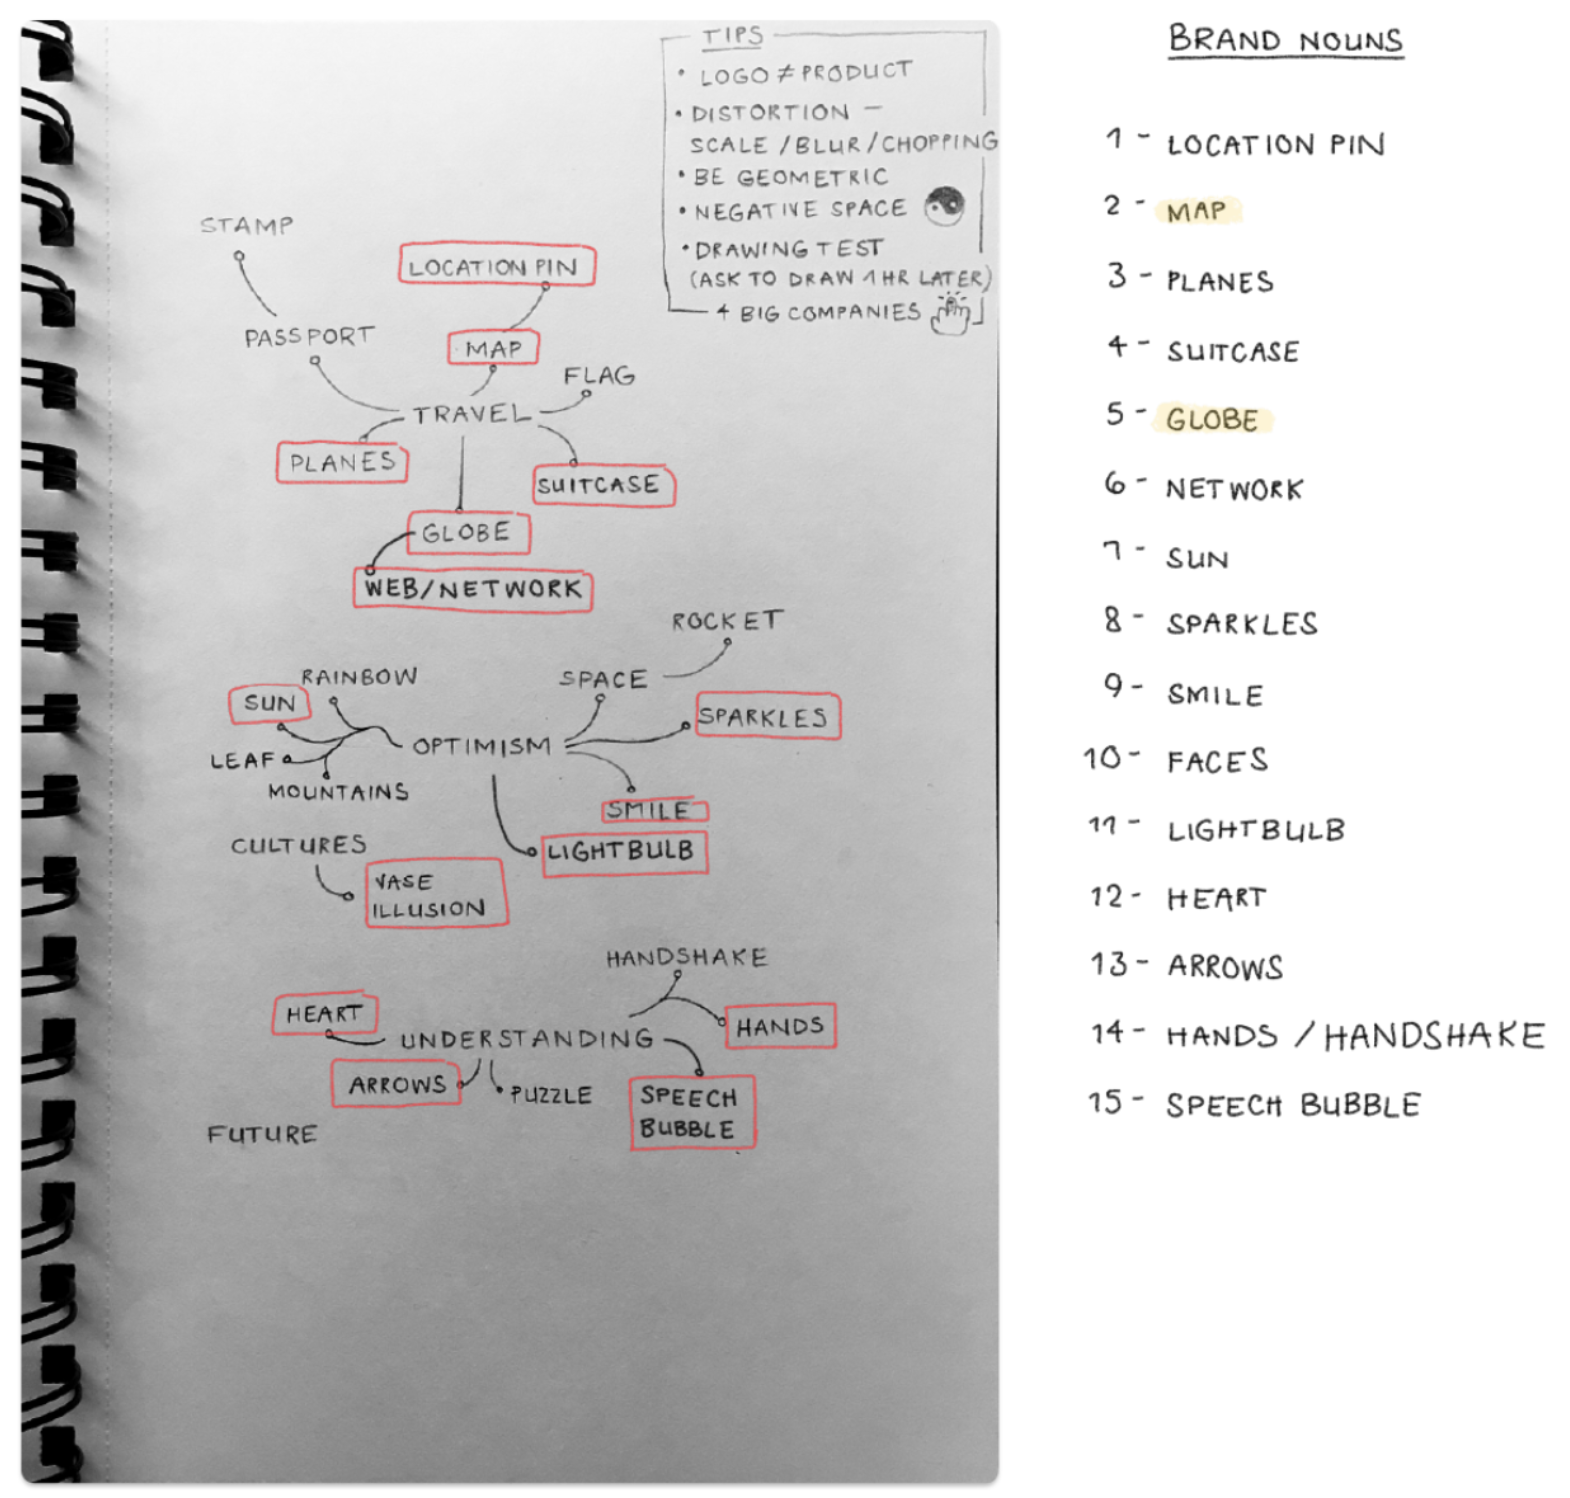 TIPS
• LOGO ≠ PRODUCT
• DISTORTION –
SCALE / BLUR / CHOPPING
• BE GEOMETRIC
• NEGATIVE SPACE
• DRAWING TEST
(ASK TO DRAW 1 HR LATER)
4 BIG COMPANIES
STAMP
LOCATION PIN
PASSPORT
MAP
FLAG
TRAVEL
PLANES
SUITCASE
GLOBE
WEB/NETWORK
ROCKET
RAINBOW
SPACE
SUN
SPARKLES
OPTIMISM
LEAF
MOUNTAINS
SMILE
CULTURES
LIGHTBULB
VASE
ILLUSION
HANDSHAKE
HEART
HANDS
UNDERSTANDING
ARROWS
PUZZLE
SPEECH
BUBBLE
FUTURE
BRAND NOUNS
1 - LOCATION PIN
2 - MAP
3 - PLANES
4 - SUITCASE
5 - GLOBE
6 - NETWORK
7 - SUN
8 - SPARKLES
9 - SMILE
10 - FACES
11 - LIGHTBULB
12 - HEART
13 - ARROWS
14 - HANDS / HANDSHAKE
15 - SPEECH BUBBLE